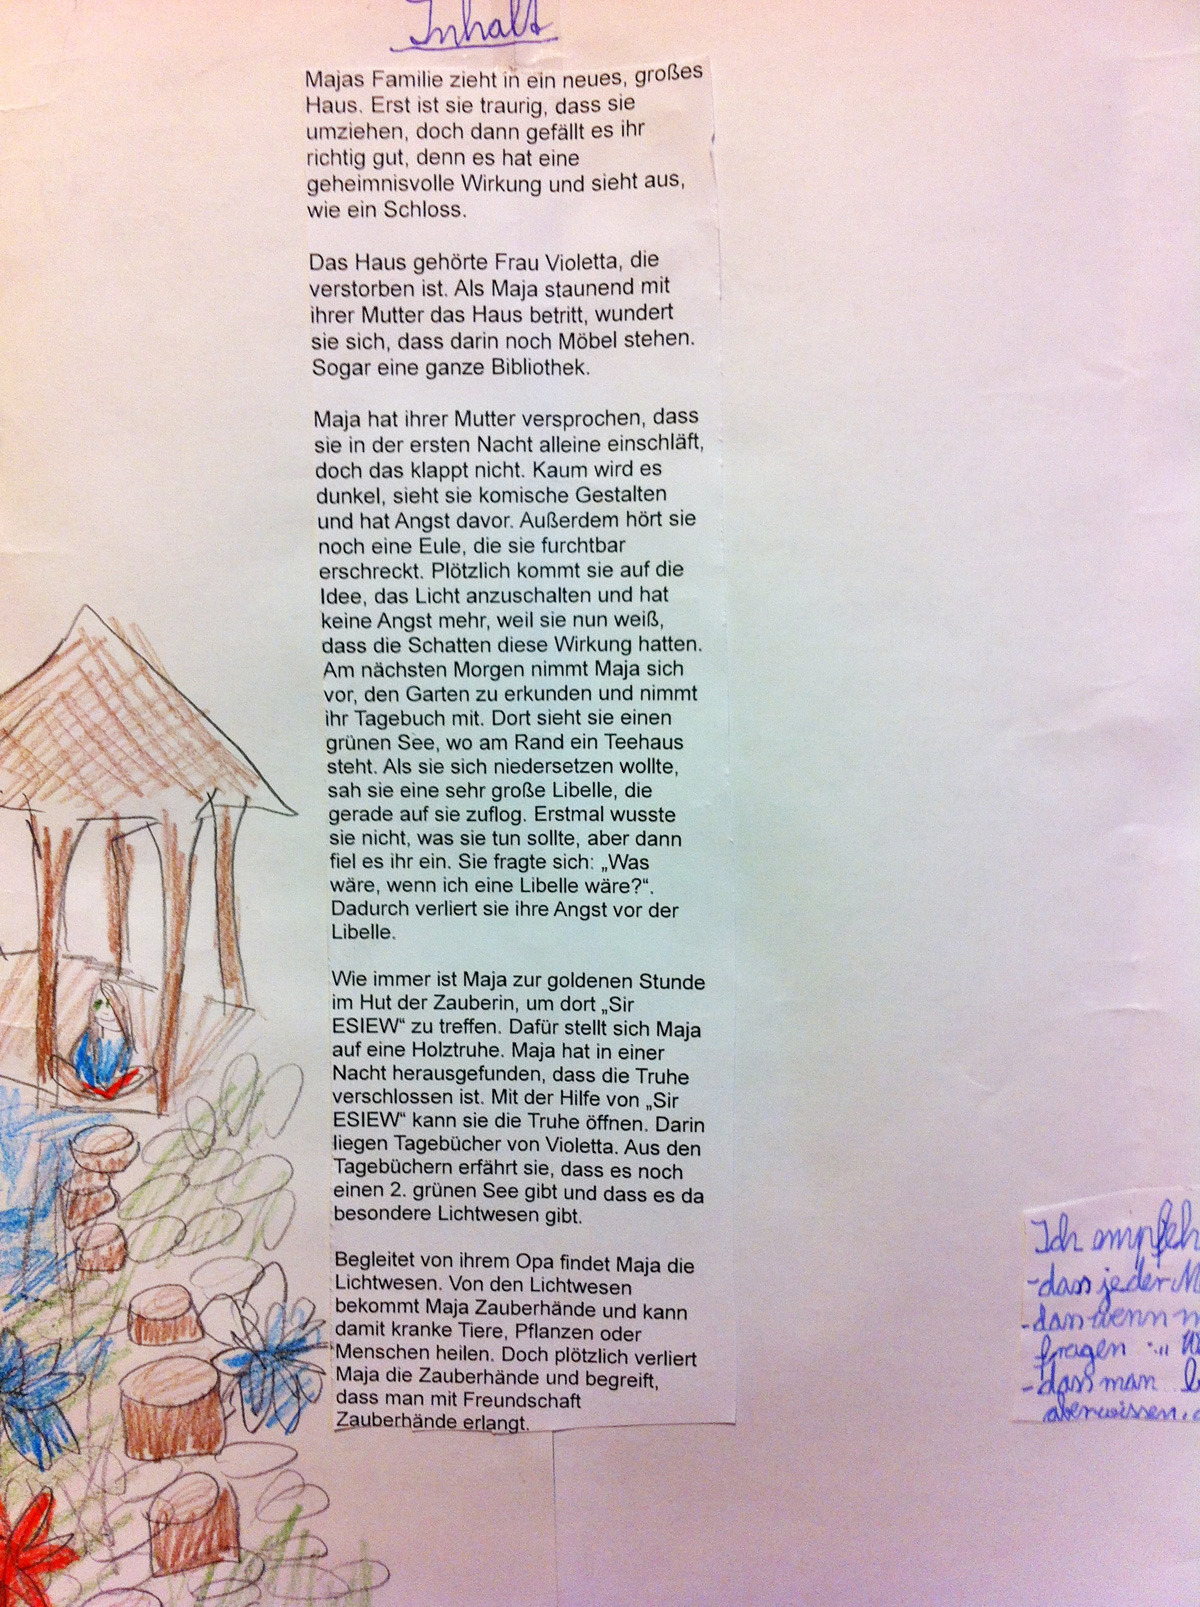 Inhalt
Majas Familie zieht in ein neues, großes
Haus. Erst ist sie traurig, dass sie
umziehen, doch dann gefällt es ihr
richtig gut, denn es hat eine
geheimnisvolle Wirkung und sieht aus,
wie ein Schloss.
Das Haus gehörte Frau Violetta, die
verstorben ist. Als Maja staunend mit
ihrer Mutter das Haus betritt, wundert
sie sich, dass darin noch Möbel stehen.
Sogar eine ganze Bibliothek.
Maja hat ihrer Mutter versprochen, dass
sie in der ersten Nacht alleine einschläft,
doch das klappt nicht. Kaum wird es
dunkel, sieht sie komische Gestalten
und hat Angst davor. Außerdem hört sie
noch eine Eule, die sie furchtbar
erschreckt. Plötzlich kommt sie auf die
Idee, das Licht anzuschalten und hat
keine Angst mehr, weil sie nun weiß,
dass die Schatten diese Wirkung hatten.
Am nächsten Morgen nimmt Maja sich
vor, den Garten zu erkunden und nimmt
ihr Tagebuch mit. Dort sieht sie einen
grünen See, wo am Rand ein Teehaus
steht. Als sie sich niedersetzen wollte,
sah sie eine sehr große Libelle, die
gerade auf sie zuflog. Erstmal wusste
sie nicht, was sie tun sollte, aber dann
fiel es ihr ein. Sie fragte sich: „Was
wäre, wenn ich eine Libelle wäre?“.
Dadurch verliert sie ihre Angst vor der
Libelle.
Wie immer ist Maja zur goldenen Stunde
im Hut der Zauberin, um dort „Sir
ESIEW“ zu treffen. Dafür stellt sich Maja
auf eine Holztruhe. Maja hat in einer
Nacht herausgefunden, dass die Truhe
verschlossen ist. Mit der Hilfe von „Sir
ESIEW“ kann sie die Truhe öffnen. Darin
liegen Tagebücher von Violetta. Aus den
Tagebüchern erfährt sie, dass es noch
einen 2. grünen See gibt und dass es da
besondere Lichtwesen gibt.
Begleitet von ihrem Opa findet Maja die
Lichtwesen. Von den Lichtwesen
bekommt Maja Zauberhände und kann
damit kranke Tiere, Pflanzen oder
Menschen heilen. Doch plötzlich verliert
Maja die Zauberhände und begreift,
dass man mit Freundschaft
Zauberhände erlangt.
Ich empfeh
-dass jeder M
-dass wenn
fragen :„
-dass man
aberwissen,